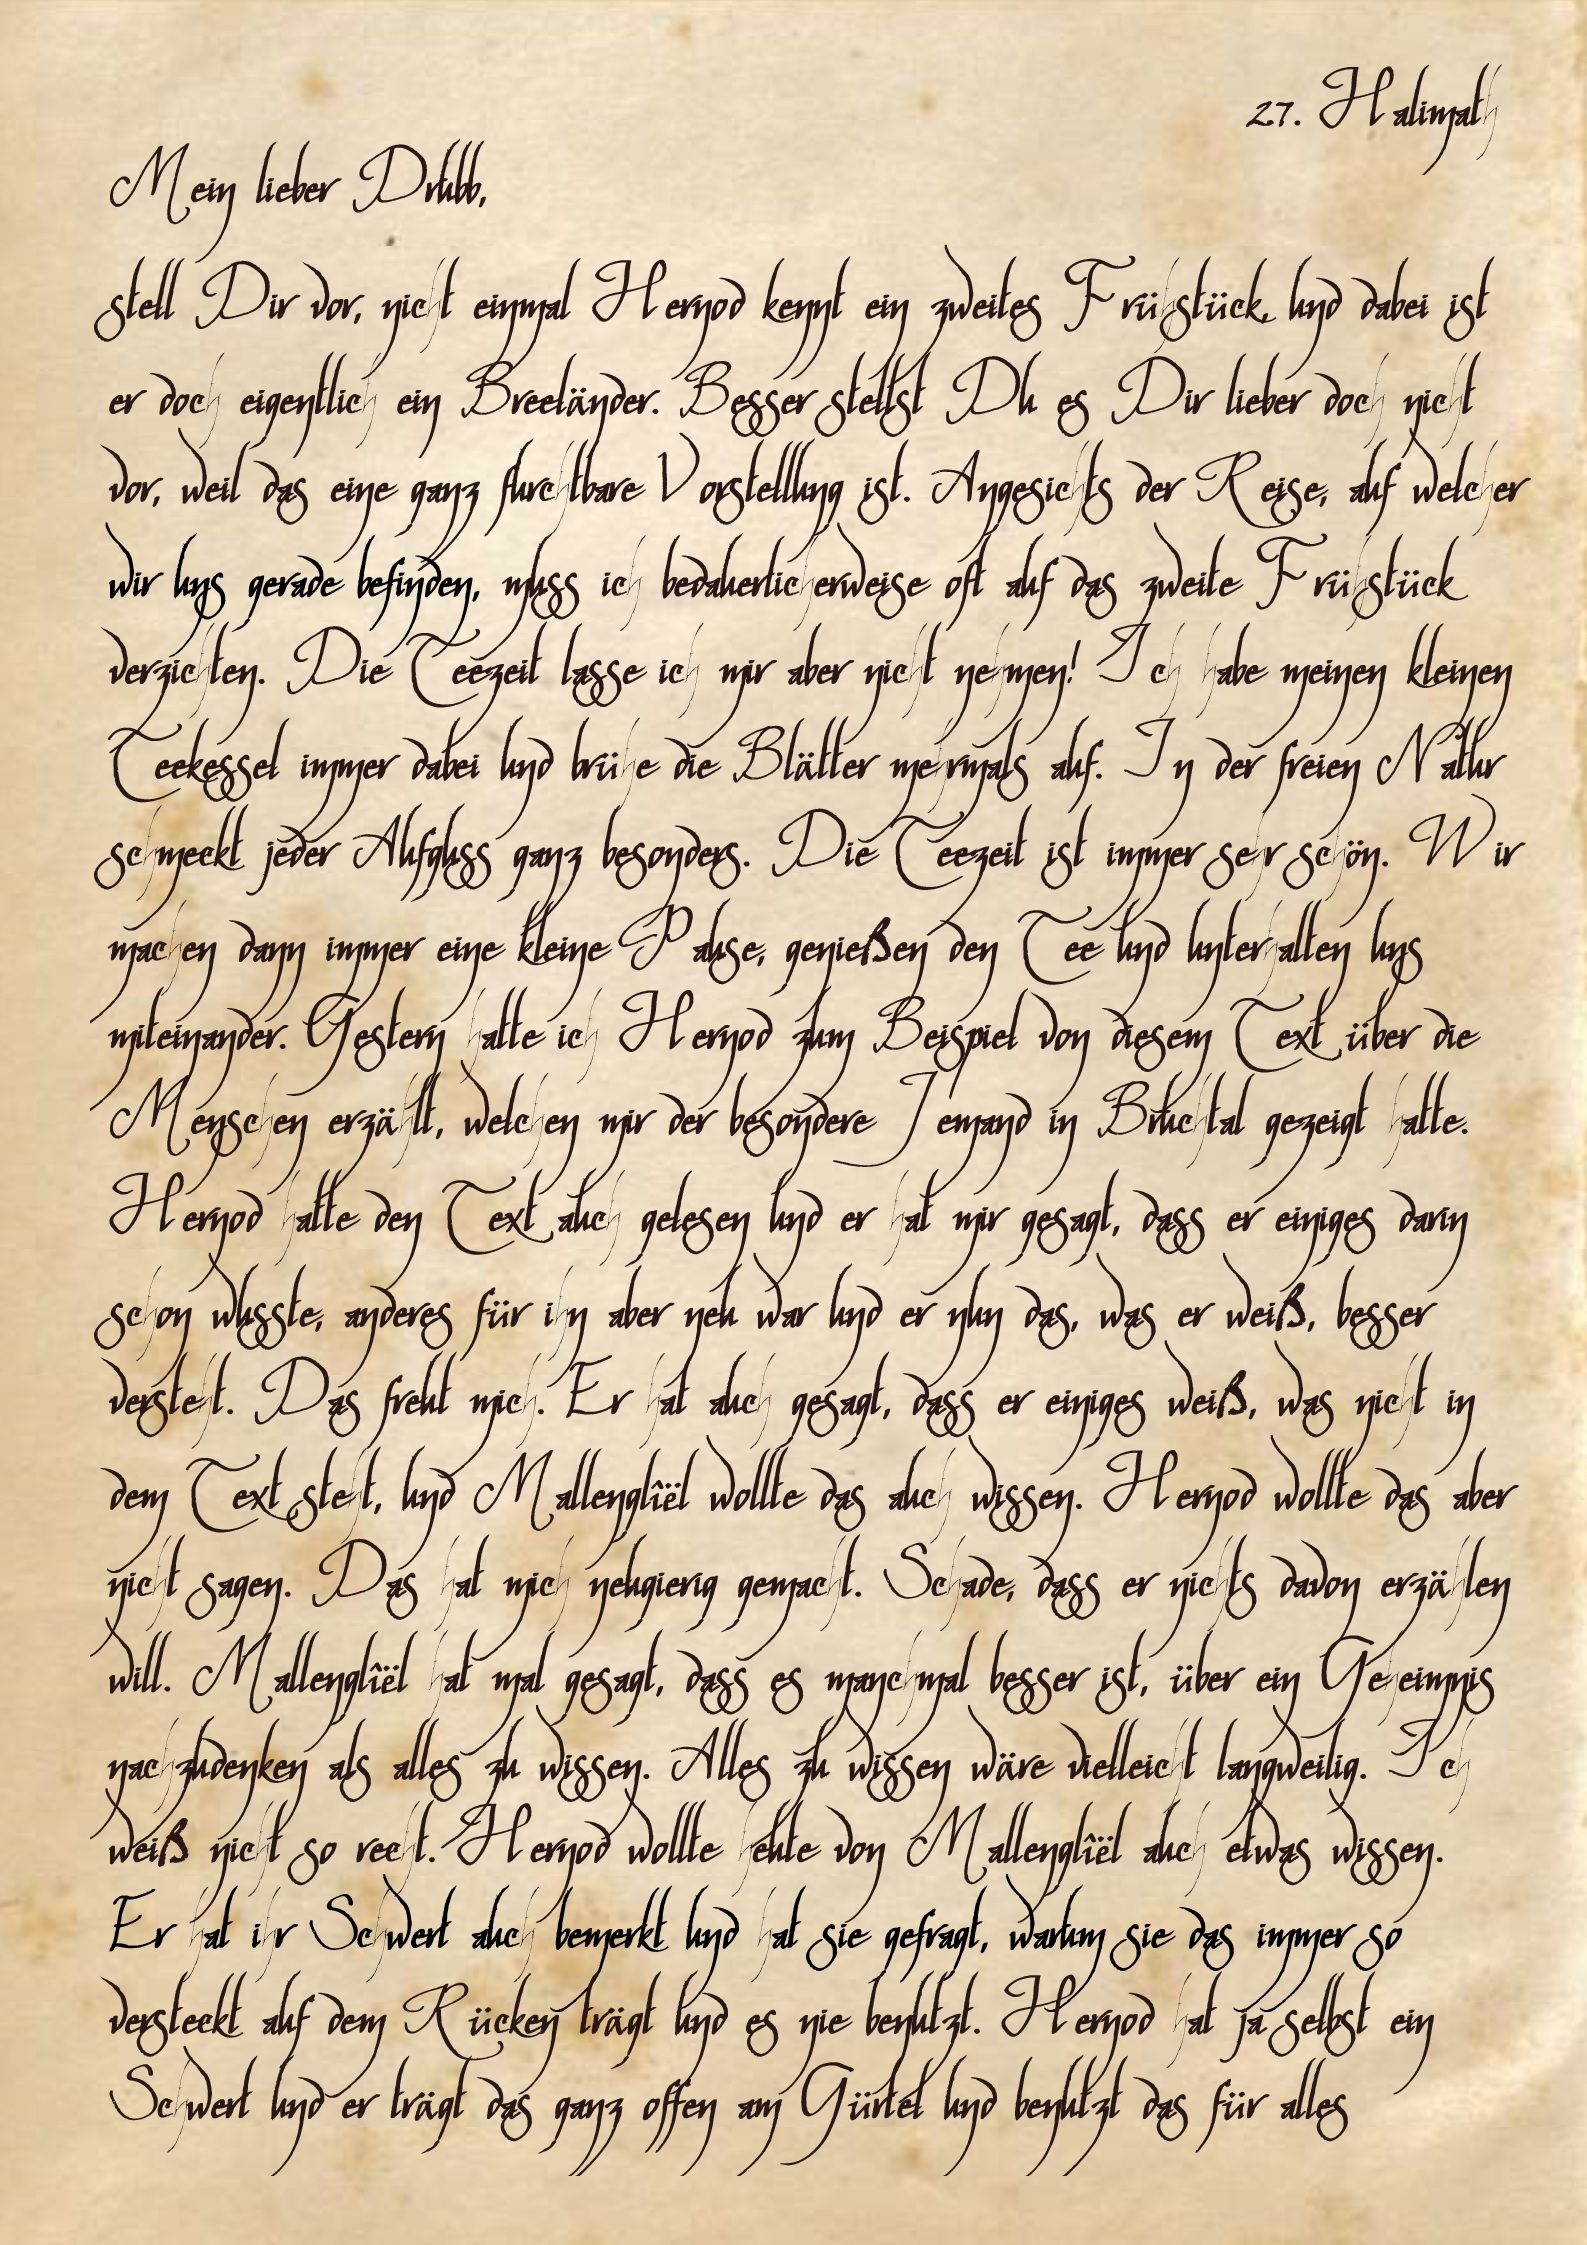 27. Halimath
Mein lieber Drubb,
stell Dir vor, nicht einmal Hernod kennt ein zweites Frühstück, und dabei ist
er doch eigentlich ein Breeländer. Besser stellst Du es Dir lieber doch nicht
vor, weil das eine ganz furchtbare Vorstellung ist. Angesichts der Reise, auf welcher
wir uns gerade befinden, muss ich bedauerlicherweise oft auf das zweite Frühstück
verzichten. Die Teezeit lasse ich mir aber nicht nehmen! Ich habe meinen kleinen
Teekessel immer dabei und brühe die Blätter mehrmals auf. In der freien Natur
schmeckt jeder Aufguss ganz besonders. Die Teezeit ist immer sehr schön. Wir
machen dann immer eine kleine Pause, genießen den Tee und unterhalten uns
miteinander. Gestern hatte ich Hernod zum Beispiel von diesem Text über die
Menschen erzählt, welchen mir der besondere Jemand in Bruchtal gezeigt hatte.
Hernod hatte den Text auch gelesen und er hat mir gesagt, dass er einiges darin
schon wusste, anderes für ihn aber neu war und er nun das, was er weiß, besser
versteht. Das freut mich. Er hat auch gesagt, dass er einiges weiß, was nicht in
dem Text steht, und Mallenglîël wollte das auch wissen. Hernod wollte das aber
nicht sagen. Das hat mich neugierig gemacht. Schade, dass er nichts davon erzählen
will. Mallenglîël hat mal gesagt, dass es manchmal besser ist, über ein Geheimnis
nachzudenken als alles zu wissen. Alles zu wissen wäre vielleicht langweilig. Ich
weiß nicht so recht. Hernod wollte heute von Mallenglîël auch etwas wissen.
Er hat ihr Schwert auch bemerkt und hat sie gefragt, warum sie das immer so
versteckt auf dem Rücken trägt und es nie benutzt. Hernod hat ja selbst ein
Schwert und er trägt das ganz offen am Gürtel und benutzt das für alles